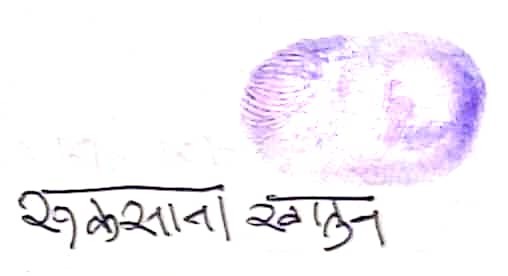 रुकसाना खातुन